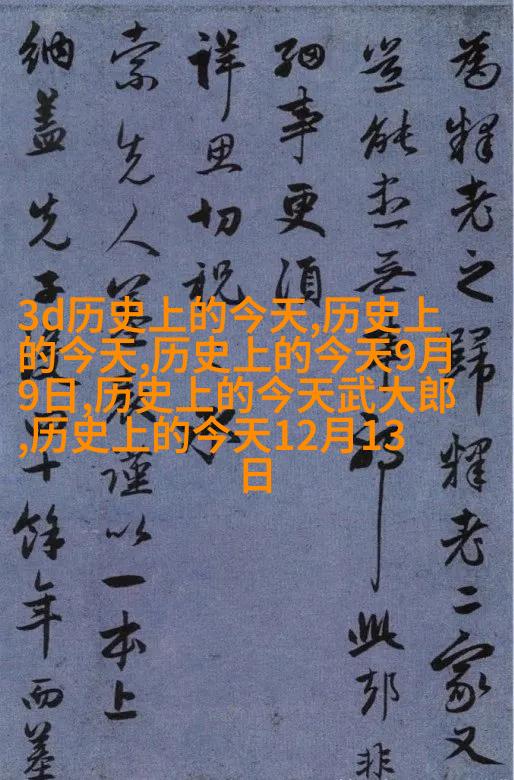 為釋老之歸釋老二家又
豈能無此非
細事更須
詳思切祝
索先人謹以一本上
納蓋先子十餘年而墓
3d历史上的今天,历史上
的今天,历史上的今天9月
9日,历史上的今天武大郎
,历史上的今天12月13
日